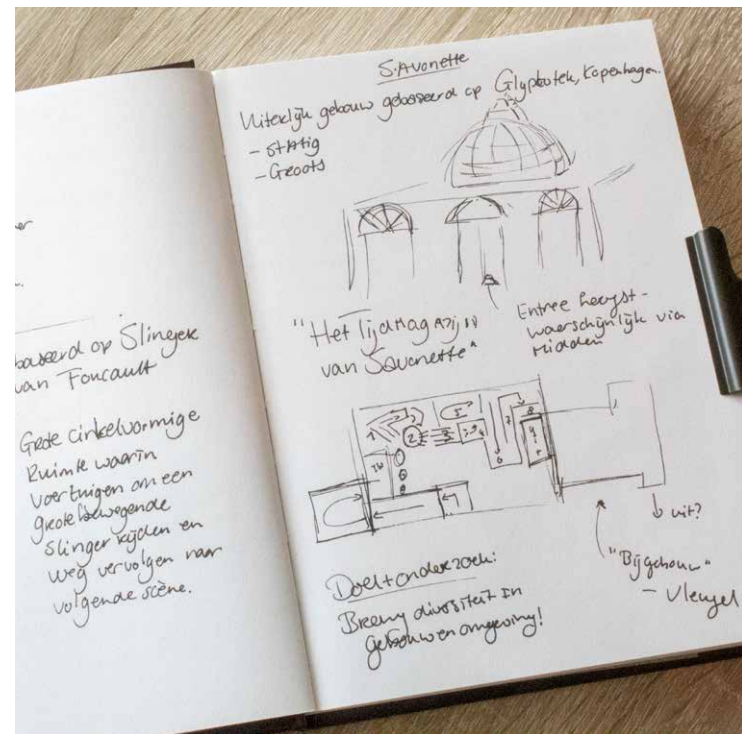 er
n.
baseerd op Slinger
van Foucault
Grote cirkelvormige
Ruimte waarin
voertuigen om een
grote bewegende
Slinger rijden en
weg vervolgen naar
volgende scène.
S.Avonette
Uiterlijk gebouw gebaseerd op Glyptotek, Kopenhagen.
- Statig
- Groots
"Het Tijdmagazijn
van Savonette"
Entree hoogst-
waarschijnlijk via
midden
1
2
3
5
6
7
8
uit?
"Bijgebouw"
- Vleugel
Doel + onderzoek:
Breng diversiteit in
gebouw en omgeving!